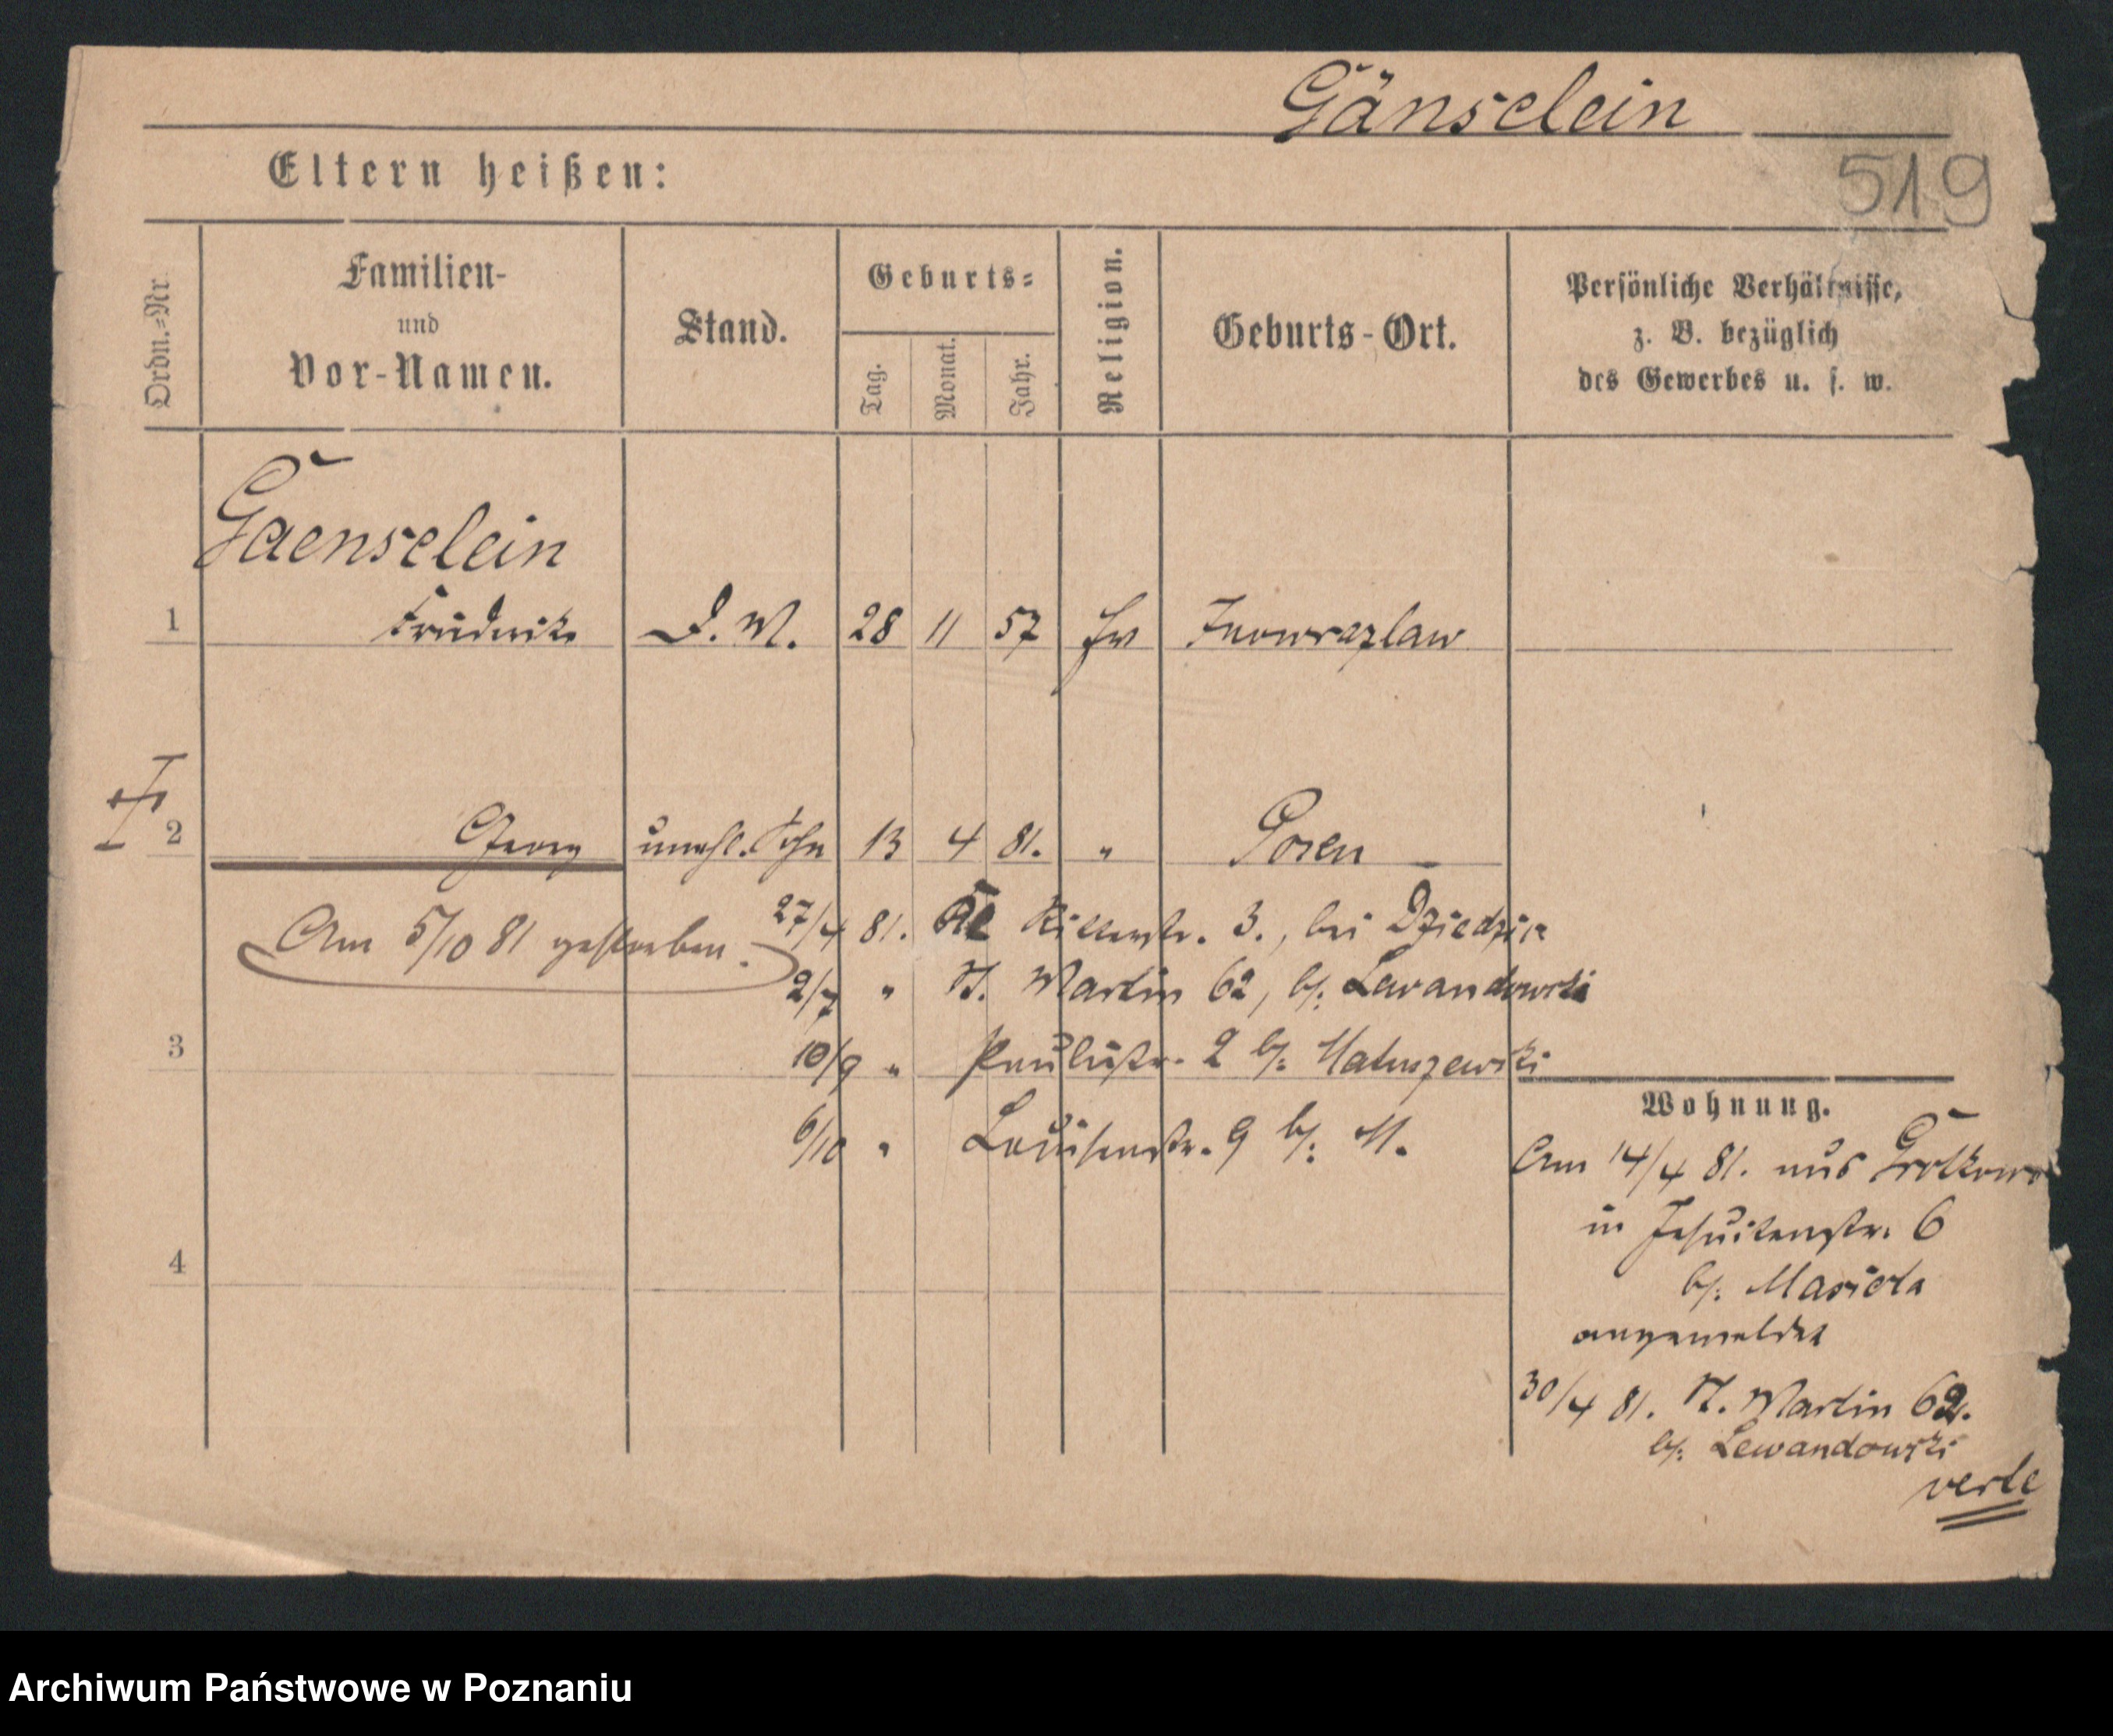 Gänselein
Eltern heißen:
519
Ordn.-Nr.
Familien-
und
Vor-Namen.
Stand.
Geburts-
Tag.
Monat.
Jahr.
Religion.
Geburts-Ort.
Persönliche Verhältnisse,
z. B. bezüglich
des Gewerbes u. s. w.
Gaenselein
1 Friederike D. M. 28 11 57 Inowrazlaw
2 Georg unehl. Sohn 13 4 81. " Posen
Am 5/10 81 gestorben.
27/4 81. Ritterstr. 3., bei
2/7 " St. Martin 62, b/: Lewandowski
10/9 " Paulistr. 2 b/: Matuszewski
6/10 " Louisenstr. 9 b/: M.
3
4
Wohnung.
Am 14/4 81. aus
in Jesuitenstr. 6
b/:
angemeldet
30/4 81. St. Martin 62.
b/: Lewandowski
verte
Archiwum Państwowe w Poznaniu